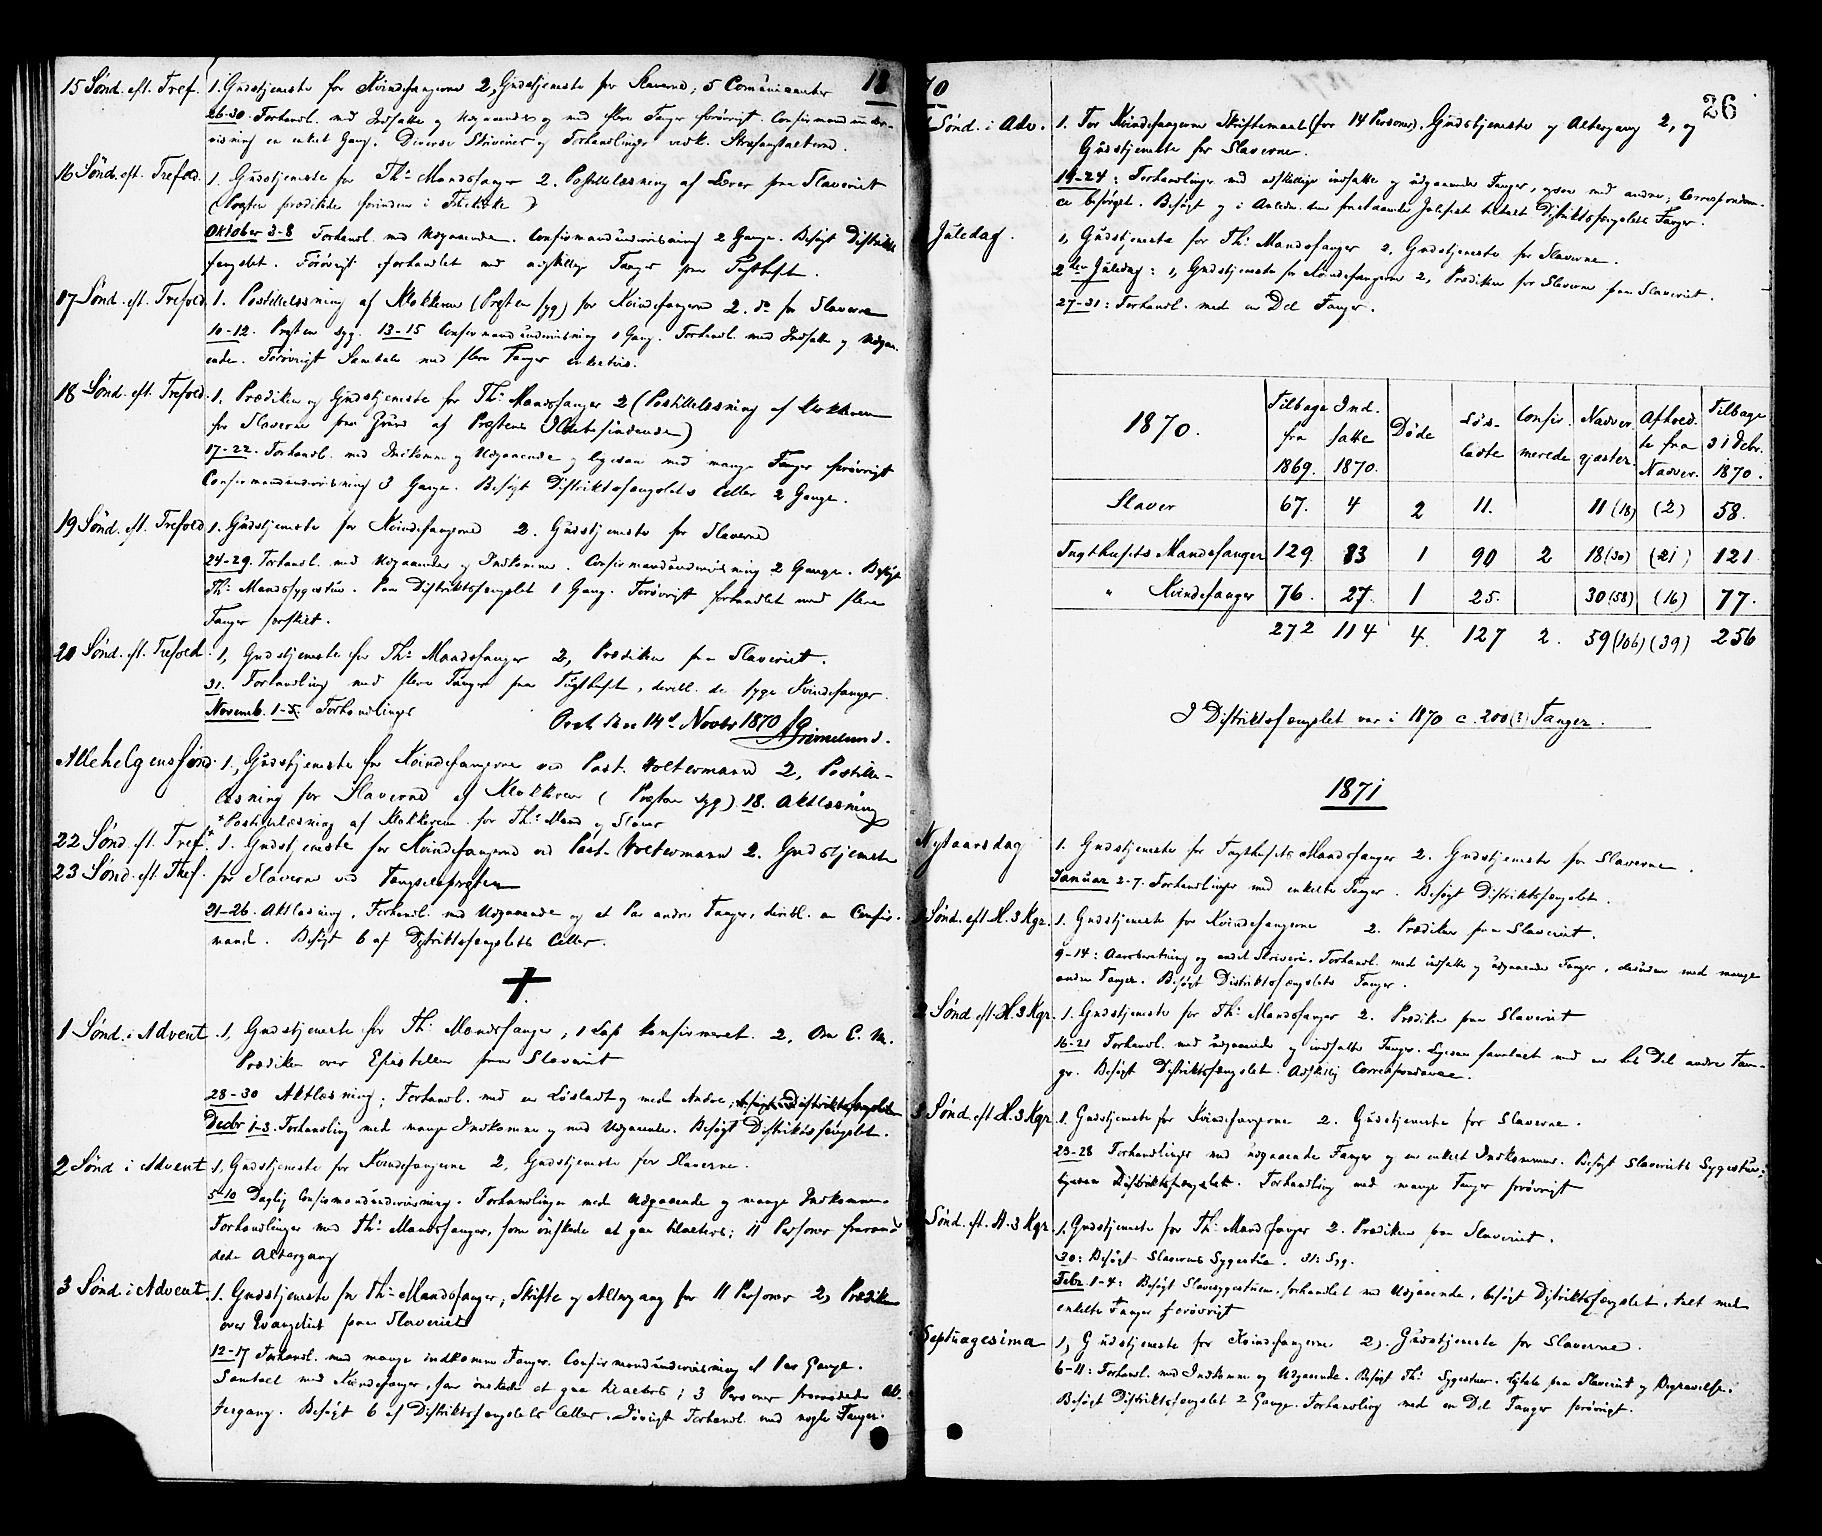 18
15 Sønd. eft. Tref. 1. Gudstjeneste for Kvindefangerne 2, Gudstjeneste for Slaverne, 5 Comunicanter
26-30 Forhandl. med Indsatte og Udgaaende og med flere Fanger forøvrigt. Confirmandunder-
visning en enkelt Gang. Diverse Skriverier og Forhandlinger vedk. Strafanstalterne.
16 Sønd. eft. Trefold. 1. Gudstjeneste for Th: Mandsfanger 2. Postillelæsning af Lærer paa Slaveriet
(Præsten prædikede
Oktober 3-8 Forhandl. med Udgaaende. Confirmandundervisning 2 Gange. Besøgt Distrikts
fængslet. Forøvrigt forhandlet med adskillige Fanger paa Tugthuset.
17 Sønd. eft. Trefold. 1. Postillelæsning af Klokkeren (Præsten syg) for Kvindefangerne 2. do for Slaverne
10-12. Præsten syg. 13-15 Confirmandundervisning 1 Gang. Forhandl. med Indsatte og Udgaa-
ende. Forøvrigt Samtale med flere Fanger enkeltvis.
18 Sønd. eft. Trefold. 1. Prædiken og Gudstjeneste for Th: Mandsfanger 2 (Postillelæsning af Klokkeren
for Slaverne paa Grund af Præstens Ildebefindende)
17-22. Forhandl. med Indkomne og Udgaaende og ligesaa med mange Fanger forøvrigt
Confirmandundervisning 3 Gange. Besøgt Distriktsfængslets Celler 2 Gange.
19 Sønd. eft. Trefold. 1. Gudstjeneste for Kvindefangerne 2. Gudstjeneste for Slaverne
24-29. Forhandl. med Udgaaende og Indkomne. Confirmandundervisning 2 Gange. Besøgt
Th: Mandssygestue. Paa Distriktsfængslet 1 Gang. Forøvrigt forhandlet med flere
Fanger
20 Sønd. eft. Trefold. 1, Gudstjeneste for Th: Mandsfanger 2, Prædiken paa Slaveriet.
31. Forhandling med flere Fanger paa Tugthuset, deribl. de syge Kvindefanger.
Novemb. 1-5 Forhandlinger
den 14de Novbr 1870 Grimelund.
Allehelgenssønd. 1., Gudstjeneste for Kvindefangerne ved Past. Woltermann 2, Postille-
læsning for Slaverne af Klokkeren (Præsten syg) 18. Aktlæsning
* Postillelæsning af Klokkeren for Th: Mand og Slaver
22 Sønd. eft. Tref.* 1. Gudstjeneste for Kvindefangerne ved Past. Woltermann 2. Gudstjeneste
23 Sønd. eft. Tref. for Slaverne ved Fangselspræsten
21-26. Aktlæsning, Forhandl. med Udgaaende og et Par andre Fanger, deribl. en Confir-
mand. Besøgt 6 af Distriktsfængslets Celler.
1 Sønd. i Advent. 1, Gudstjeneste for Th: Mandsfanger, 1 Løs konfirmeret. 2, Om E. M.
Prædiken over Epistelen paa Slaveriet
28-30 Aktlæsning; Forhandl. med en Løsladt og med Andre;
Decbr 1-3. Forhandling med mange Indkomne og med Udgaaende. Besøgt Distriktsfængslet.
2 Sønd i Advent 1, Gudstjeneste for Kvindefangerne 2, Gudstjeneste for Slaverne.
5-10 Daglig Confirmandundervisning. Forhandlinger med Udgaaende og mange Indkomne.
Forhandlinger med Th: Mandsfanger, som ønskede at gaa tilalters; 11 Personer fraraa-
dede Altergang
3 Sønd. i Advent. 1. Gudstjeneste for Th: Mandsfanger, Skrifte og Altergang for 11 Personer 2, Prædiken
over Evangeliet paa Slaveriet
12-17 Forhandl. med mange indkomne Fanger. Confirmandundervisning et Par Gange.
Samtalt med Kvindefanger, som ønskede at gaa til alters; 3 Personer fraraadede Al-
tergang. Besøgt 6 af Distriktsfængslets Celler. Iøvrigt Forhandl. med nogle Fanger.
70
26
Sønd. i Adv. 1. For Kvindefangerne Skriftemaal (for 14 Personer), Gudstjeneste og Altergang 2, og
Gudstjeneste for Slaverne.
19-24: Forhandlinger med adskillige indsatte og udgaaende Fanger, ogsaa med andre; Correspondan-
ce besørget. Besøgt og i Anledn. den forestaaende Julefest Distriktsfængslets Fanger.
Juledag. 1, Gudstjeneste for Th: Mandsfanger 2, Gudstjeneste for Slaverne.
2den Juledag: 1, Gudstjeneste for Kvindefangerne 2, Prædiken for Slaverne paa Slaveriet.
27-31: Forhandl. med en Del Fanger.
1870. Tilbage fra 1869. Ind. satte 1870. Døde Løs- ladte Confir. merede Nadver gjæster. Afhold. te fra Nadver. Tilbage 31 Decbr. 1870.
Slaver 67. 4 2 11. 11 (18) (2) 58.
Tugthusets Mandsfanger 129 83 1 90 2 18 (30) (21) 121
" Kvindefanger 76. 27. 1 25. 30 (58) (16) 77.
272 114 4. 127 2. 59 (106) (39) 256
I Distriktsfængslet var i 1870 c. 200 (?) Fanger.
1871
Nytaarsdag 1. Gudstjeneste for Tugthusets Mandsfanger 2. Gudstjeneste for Slaverne.
Januar 2-7. Forhandlinger med enkelte Fanger. Besøgt Distriktsfængslet.
Sønd. eft H. 3 Kgr. 1. Gudstjeneste for Kvindefangerne 2. Prædiken paa Slaveriet.
9-14: Aarsberetning og andet Skriveri. Forhandl. med indsatte og udgaaende Fanger, desuden med mange
andre Fanger. Besøgt Distriktsfængslets Fanger.
2 Sønd. eft H. 3 Kgr. 1. Gudstjeneste for Th: Mandsfanger 2. Prædiken paa Slaveriet
16-21 Forhandl. med udgaaende og indsatte Fanger. Ligesaa samtalet med en hel Del andre Fan-
ger. Besøgt Distriktsfængslet. Adskillig Correspondance.
3 Sønd. eft H. 3 Kgr. 1. Gudstjeneste for Kvindefangerne 2. Gudstjeneste for Slaverne.
23-28 Forhandlinger med udgaaende Fanger og en enkelt Indkommen. Besøgt Slaveriets Sygestue;
ligesaa Distriktsfængslet. Forhandling med mange Fanger forøvrigt
Sønd. eft. H. 3 Kgr. 1, Gudstjeneste for Th: Mandsfanger 2. Prædiken paa Slaveriet.
30: Besøgt Slavernes Sygestue. 31: Syg.
Febr. 1-4: Besøgt Slavesygestuen, forhandlet med Udgaaende, besøgt Distriktsfængslet, talt med
enkelte Fanger forøvrigt
Septuagesima 1, Gudstjeneste for Kvindefangerne 2). Gudstjeneste for Slaverne.
6-11: Forhandl. med Indkomne og Udgaaende. Besøgt Th: Sygestuer. paa Slaveriet og Begravelse.
Besøgt Distriktsfængslet 2 Gange. Forhandling med en Del Fanger forøvrigt.